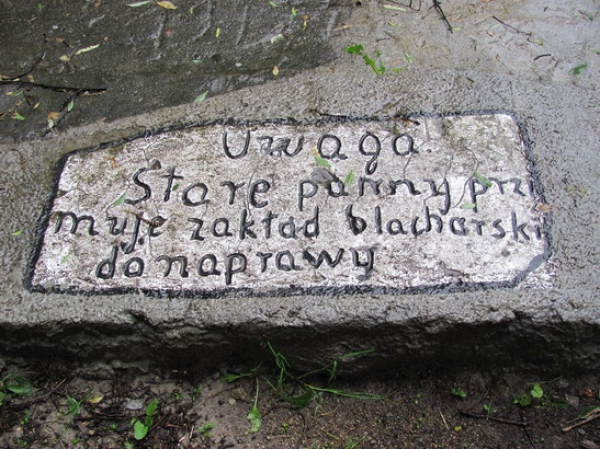 Uwaga!
Stare panny przi
muje zakład blacharski
donaprawy